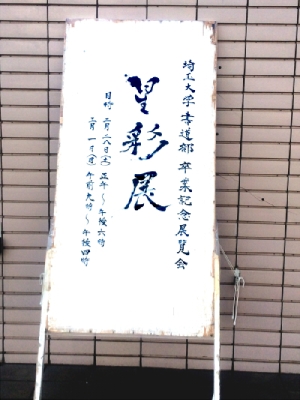 埼玉大学 書道部 卒業記念展覧会
星彩展
日時 二月二八日(木) 正午～午後六時
三月一日(金) 午前九時～午後四時